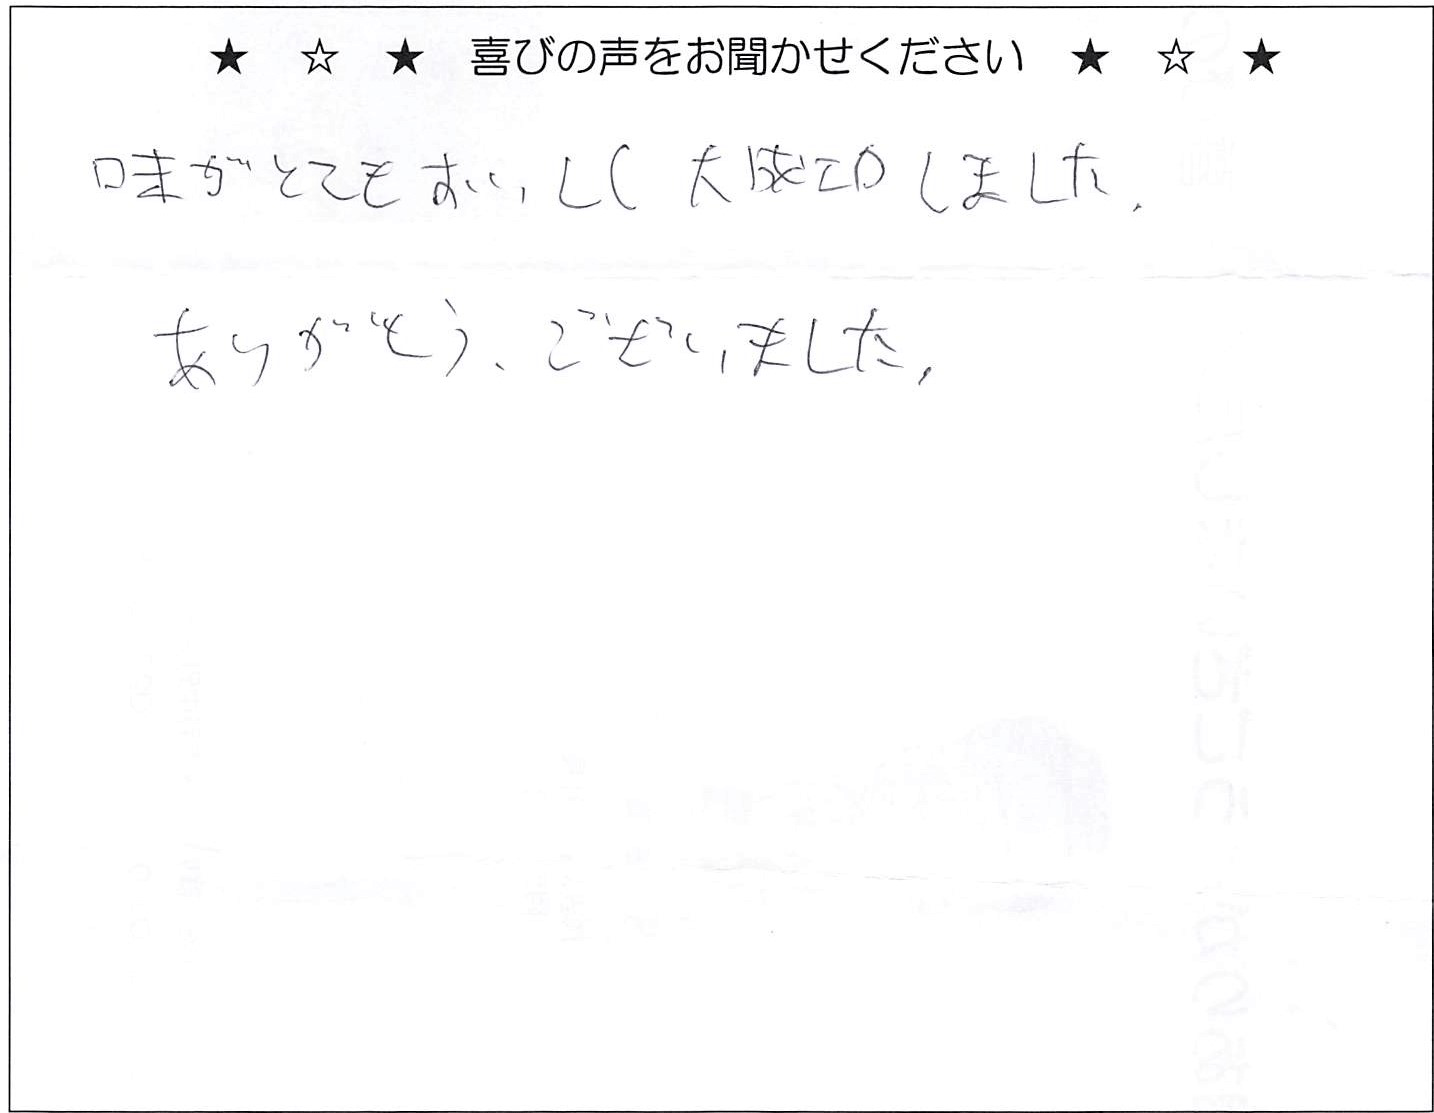 ★ ☆ ★ 喜びの声をお聞かせください ★ ☆ ★
味がとてもおいしく大成功しました.
ありがとう、ございました,